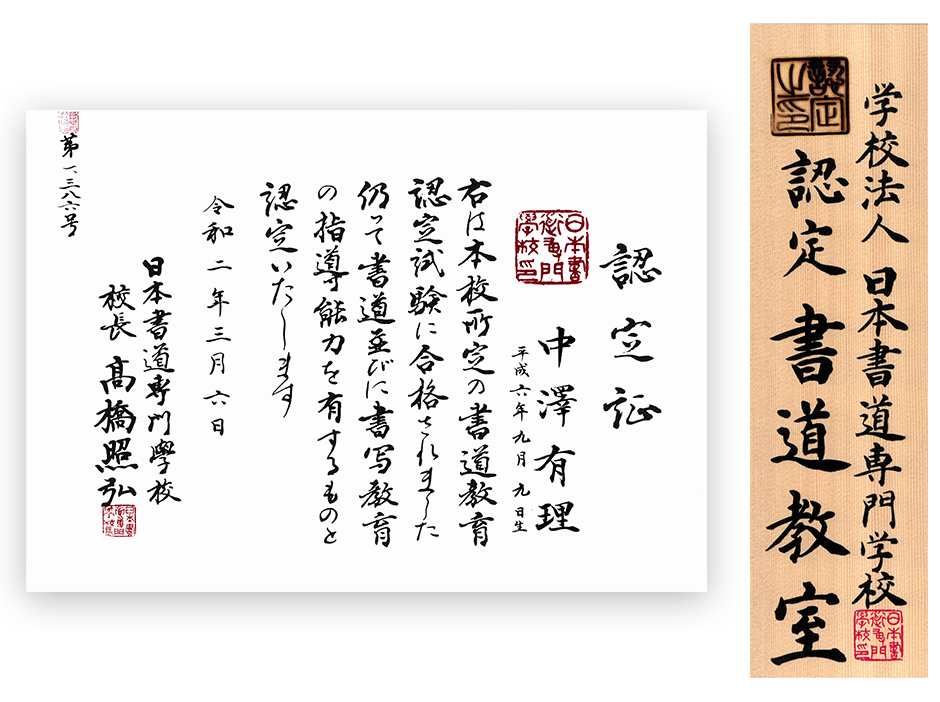 認定証
中澤有理
平成六年九月九日生
右は本校所定の書道教育
認定試験に合格されました
仍て書道並びに書写教育
の指導能力を有するものと
認定いたします
令和二年三月六日
日本書道専門學校
校長 髙橋照弘
第一、三八六号
日本書道専門学校印
学校法人 日本書道専門学校
認定書道教室
認定之印
日本書道専門学校印